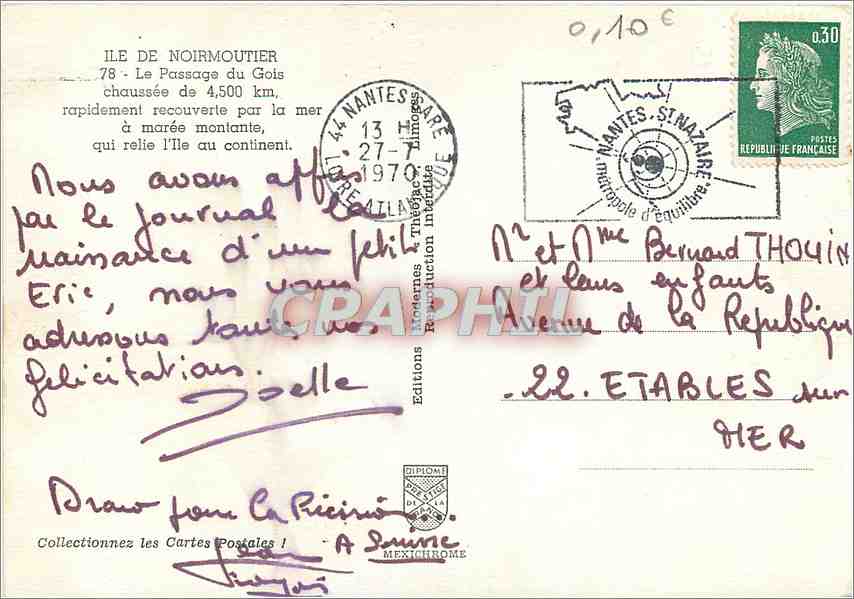 0,10 €
0.30
POSTES
REPUBLIQUE FRANÇAISE
ILE DE NOIRMOUTIER
78 - Le Passage du Gois
chaussée de 4,500 km,
rapidement recouverte par la mer
à marée montante,
qui relie l'Ile au continent.
44 NANTES GARE
13 H
27-7
1970
LOIRE-ATLANTIQUE
NANTES. ST NAZAIRE
métropole d'équilibre
Nous avons appris
par le journal la
naissance d'un petit
Eric, nous vous
adressons toutes nos
félicitations.
Joelle
Bravo pour la Précision...
A Suivre
Jean
François
Mr et Mme Bernard THOUIN
et leurs enfants
Avenue de la Republique
22. ETABLES sur
MER
Editions Modernes "Théojac" Limoges
Reproduction Interdite
CPAPHIL
DIPLOME
PRESTIGE
DE LA
FRANCE
MEXICHROME
Collectionnez les Cartes Postales !